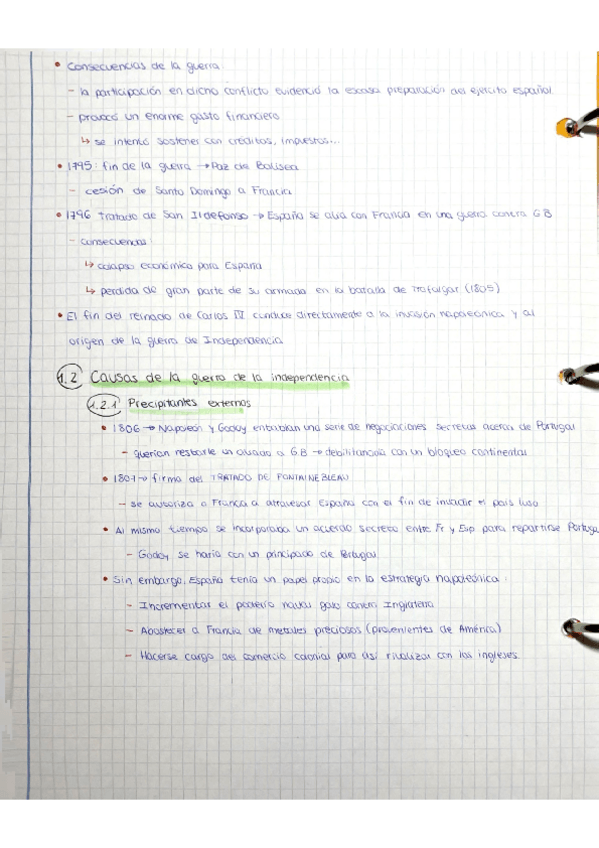 • Consecuencias de la guerra
- la participación en dicho conflicto evidenció la escasa preparación del ejercito español.
- provocó un enorme gasto financiero
↳ se intentó sostener con créditos, impuestos...
• 1795: fin de la guerra → Paz de Basilea
- cesión de Santo Domingo a Francia.
• 1796 Tratado de San Ildefonso → España se alia con Francia en una guerra contra GB
- consecuencias
↳ colapso económico para España
↳ perdida de gran parte de su armada en la batalla de Trafalgar (1805)
• El fin del reinado de Carlos IV conduce directamente a la invasión napoleónica y al
origen de la guerra de Independencia
1.2 Causas de la guerra de la independencia
1.2.1 Precipitantes externos
• 1806 → Napoleón y Godoy entablan una serie de negociaciones secretas acerca de Portugal
- querian restarle un aliado a GB → debilitandola con un bloqueo continental.
• 1807 → firma del TRATADO DE FONTAINEBLEAU
- se autoriza a Francia a atravesar España con el fin de invadir el país luso
• Al mismo tiempo se incorporaba un acuerdo secreto entre Fr y Esp para repartirse Portugal
- Godoy se haria con un principado de Portugal
• Sin embargo, España tenia un papel propio en la estrategia napoleónica:
- Incrementar el poderío naval galo contra Inglaterra
- Abastecer a Francia de metales preciosos (provenientes de América)
- Hacerse cargo del comercio colonial para así rivalizar con los ingleses.